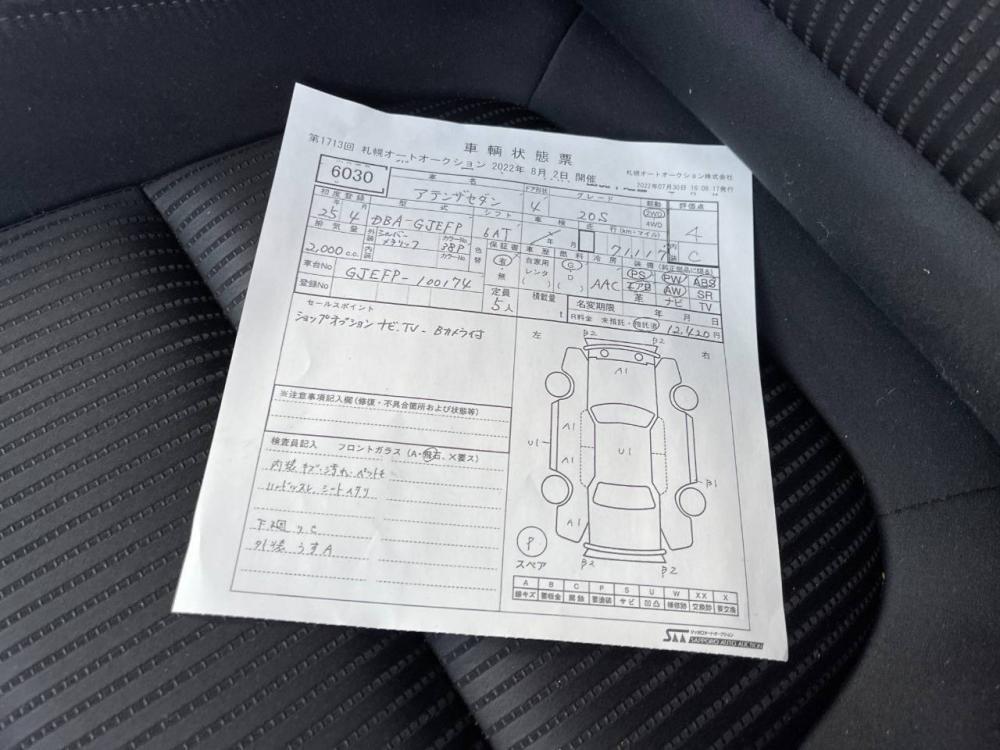 車輌状態票
第1713回 札幌オートオークション 2022年 8月 2日 開催
札幌オートオークション株式会社
2022年07月30日 16:09:17発行
6030
車名 ドア形状 グレード 駆動 評価点
アテンザセダン 4 20S 2WD 4WD 4
初度登録 型式 シフト 車検 走行(km・マイル) 内装
25 4 DBA-GJEFP 6AT 年 月 71,117 C
排気量 外装 シルバーメタリック カラーNo. 38P 色替 保証書 車歴 燃料 冷房 装備 (純正部品に限る)
2,000 c.c. 内装 カラーNo. 有・無 自家用 レンタ ( ) G D ( ) AAC PS PW ABS
エアB AW SR
革 ナビ TV
車台No GJEFP-100174 定員 5人 積載量 t 名変期限 年 月 日
登録No R料金 未預託・預託済 12,420円
セールスポイント
ショップオプション ナビ.TV-Bカメラ付
※注意事項記入欄(修復・不具合箇所および状態等)
検査員記入 フロントガラス(A・飛石、X要ス)
内装キズ・汚れ・
シートヘタリ
下廻り C
外装 うすA
左 右
B2 B2
A1
A1
U1 U1
A1
B1
A1
B2 B2
P
スペア
A B C P S U W XX X
線キズ 要板金 腐蝕 要塗装 サビ 凹凸 補修跡 交換跡 要交換
SAA サッポロオートオークション
SAPPORO AUTO AUCTION